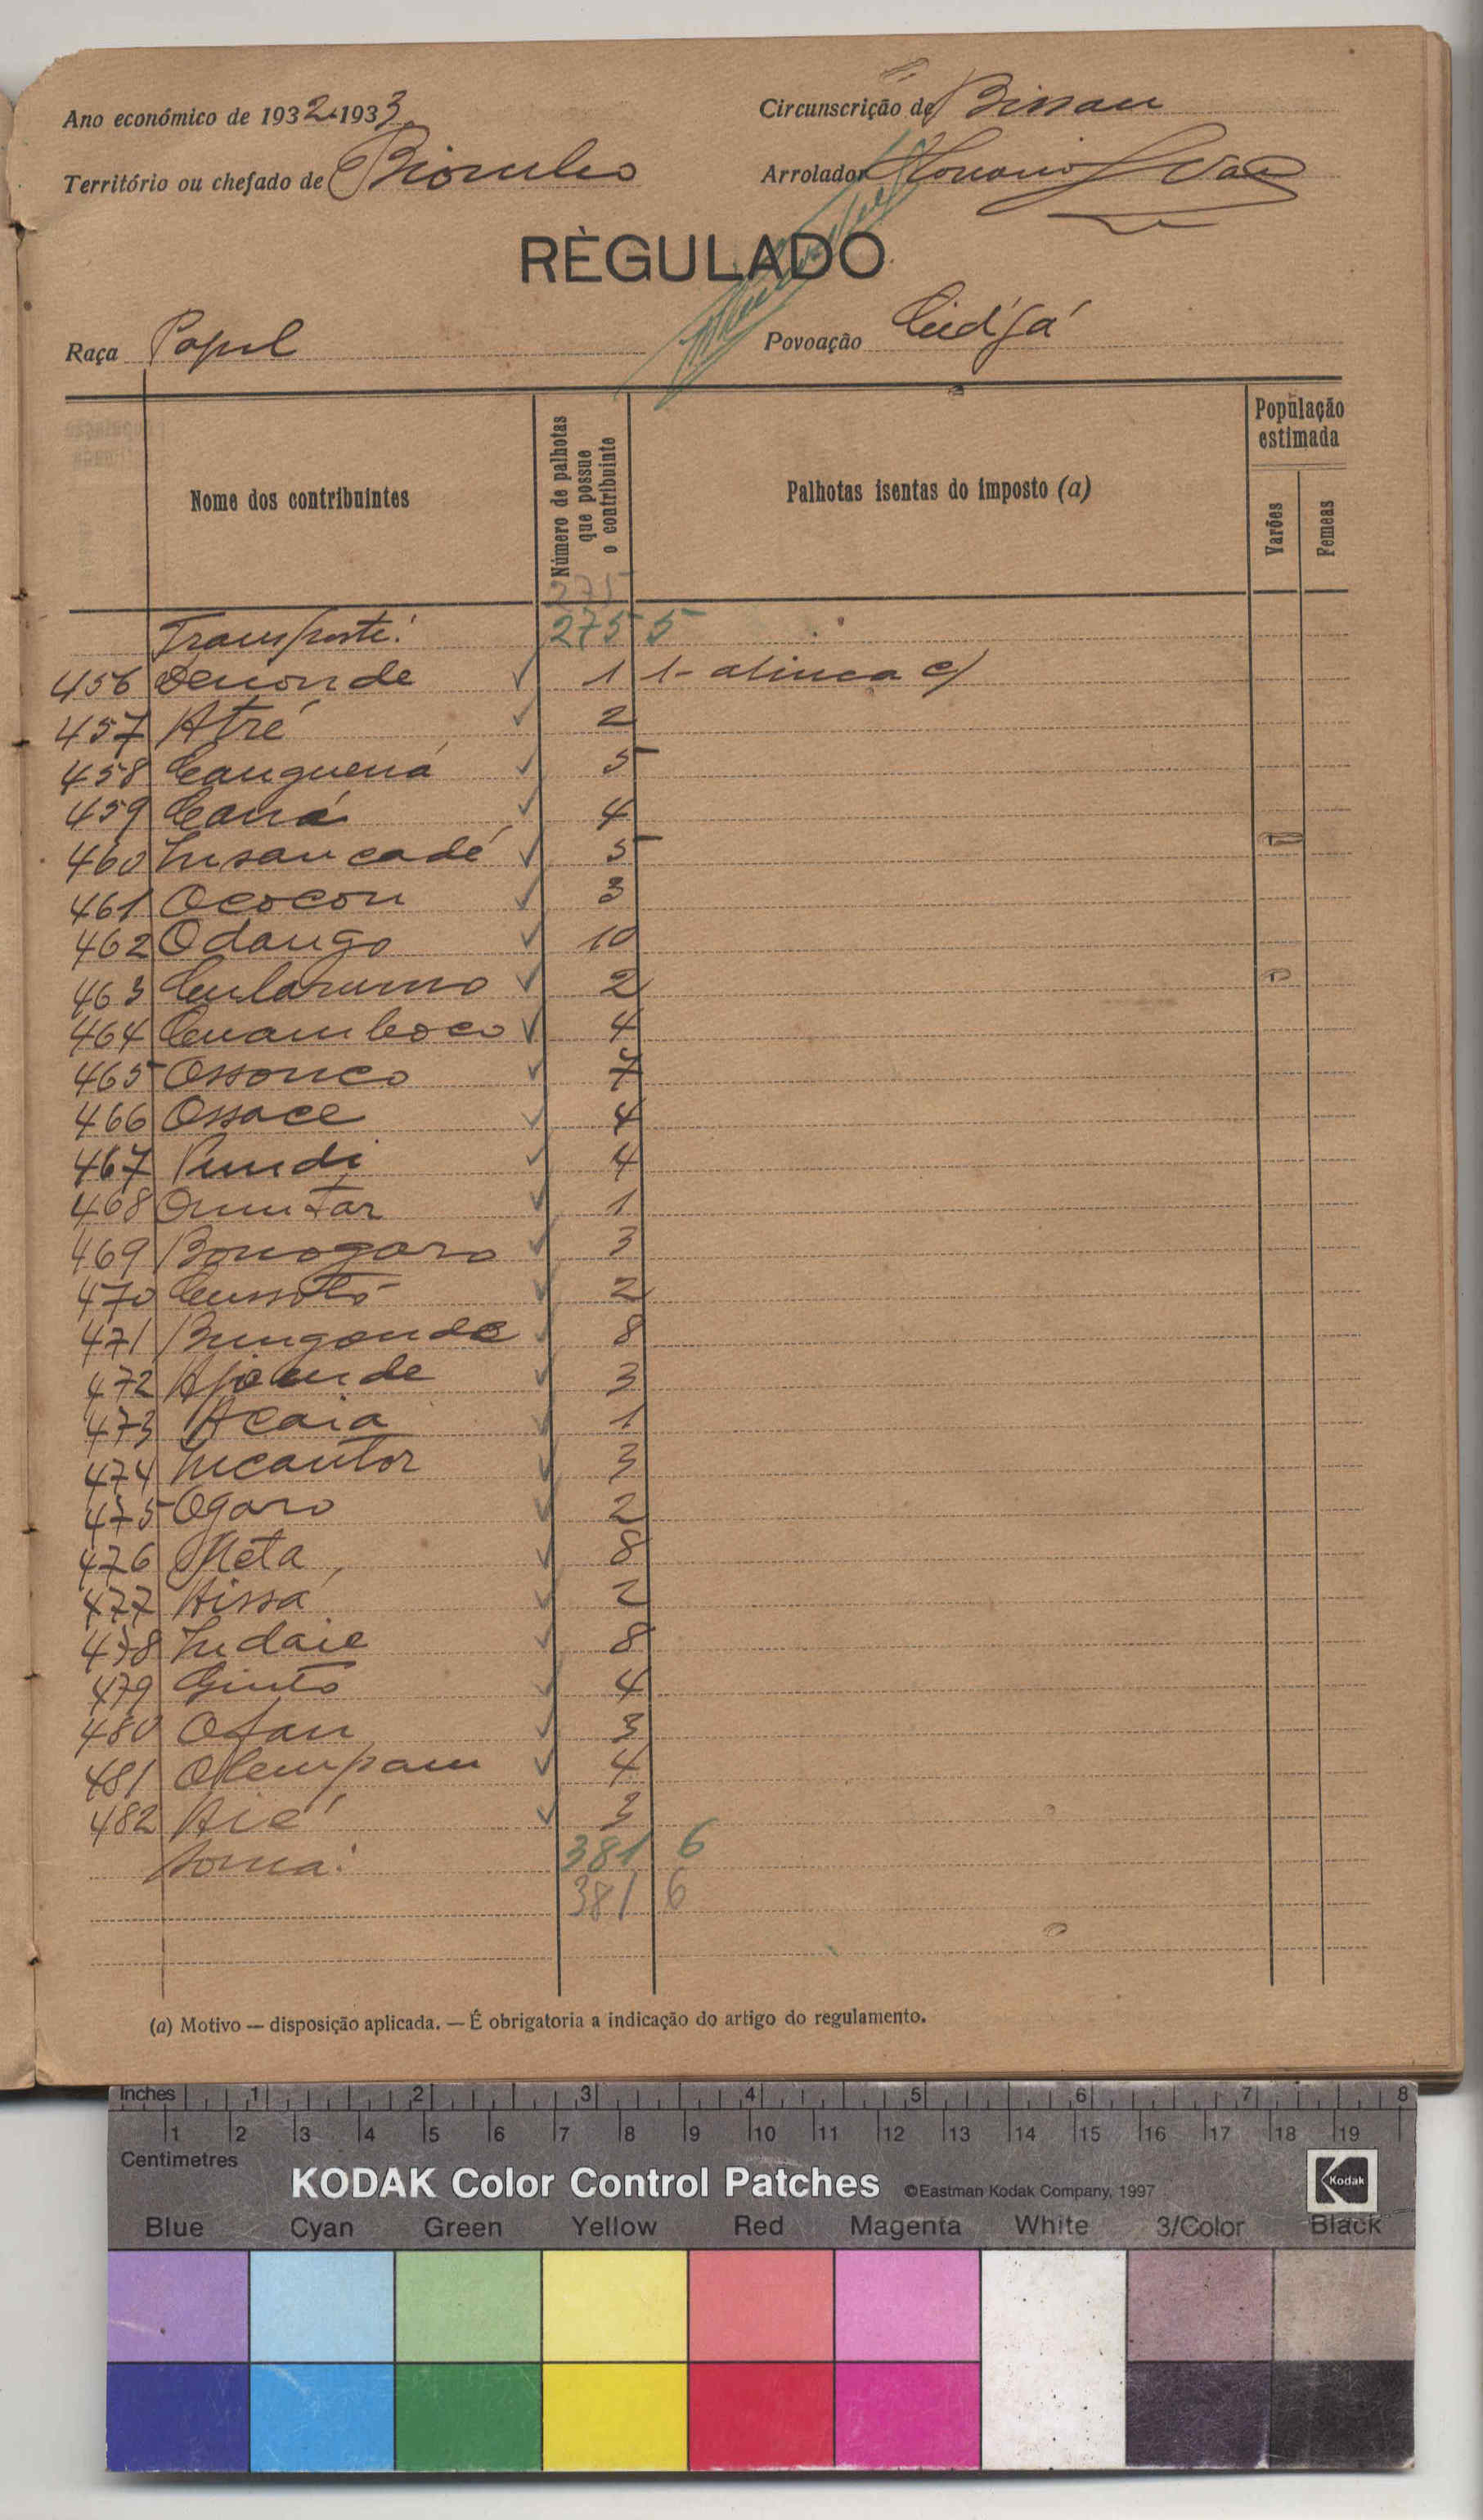 Ano económico de 1932-1933
Circunscrição de Bissau
Território ou chefado de Biombo
Arrolador Honorio Vaz
RÈGULADO
Raça Papel
Povoação
População estimada
Nome dos contribuintes
Número de palhotas que possue o contribuinte
Palhotas isentas do imposto (a)
Varões
Femeas
275
Transporte: 275 5
456 Denonde 1 1- alinea c)
457 Atré 2
458 Canguená 5
459 Caná 4
460 Insancadé 5
461 Ococon 3
462 Odango 10
463 2
464 Cuamboco 4
465 Ossonco 7
466 Ossace 4
467 Pundi 4
468 1
469 Bonogaro 3
470 Cussotó 2
471 Bungonde 8
472 3
473 Acaia 1
474 Incantor 3
475 Ogaro 2
476 Neta 8
477 Aissá 2
478 Indaie 8
479 Ginto 4
480 Ofan 3
481 Olempam 4
482 Aié 3
Soma: 381 6
381 6
(a) Motivo — disposição aplicada. — É obrigatoria a indicação do artigo do regulamento.
Inches 1 2 3 4 5 6 7 8
1 2 3 4 5 6 7 8 9 10 11 12 13 14 15 16 17 18 19
Centimetres
KODAK Color Control Patches ©Eastman Kodak Company, 1997 Kodak
Blue Cyan Green Yellow Red Magenta White 3/Color Black